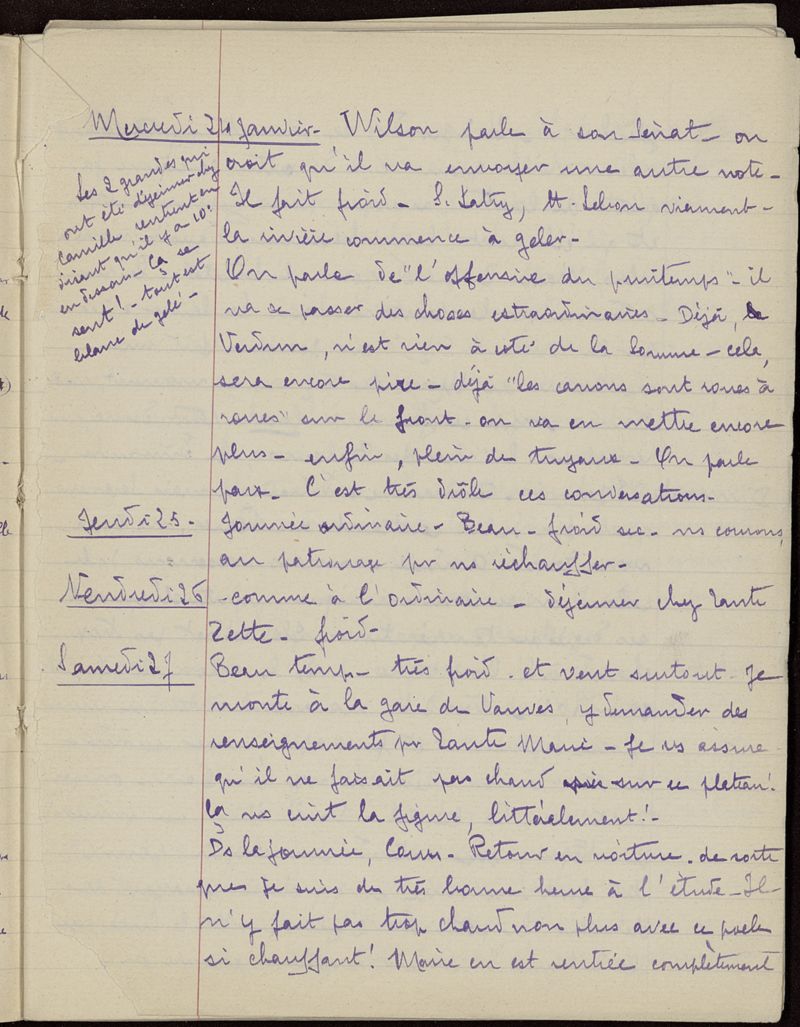 Mercredi 24 Janvier - Wilson parle à son Sénat - on
croit qu'il va envoyer une autre note -
Il fait froid - S. Latry, M. Lebon viennent -
la rivière commence à geler -
Les 2 grandes qui
ont été déjeuner chez
Camille rentrent en
disant qu'il y a 10°
en dessous - Ça se
sent ! - tout est
blanc de gelé -
On parle de "l'offensive du printemps" - il
va se passer des choses extraordinaires - Déjà,
Verdun, n'est rien à côté de la Somme - cela,
sera encore pire - déjà "les canons sont roues à
roues" sur le front - on va en mettre encore
plus - enfin, plein de tuyaux - On parle
paix - C'est très drôle ces conversations -
Jeudi 25 - Journée ordinaire - Beau - froid sec - ns courons,
au patronage pr ns réchauffer -
Vendredi 26 - comme à l'ordinaire - déjeuner chez Tante
Zette - froid -
Samedi 27 Beau temp - très froid - et vent surtout - Je
monte à la gare de Vanves, y demander des
renseignements pr Tante Marie - Je vs assure
qu'il ne faisait pas chaud sur ce plateau !
Ça vs cuit la figure, littéralement ! -
Ds la journée, Cours - Retour en voiture - de sorte
que je suis de très bonne heure à l'étude - Il
n'y fait pas trop chaud non plus avec ce poele
si chauffant ! Marie en est rentrée complètement